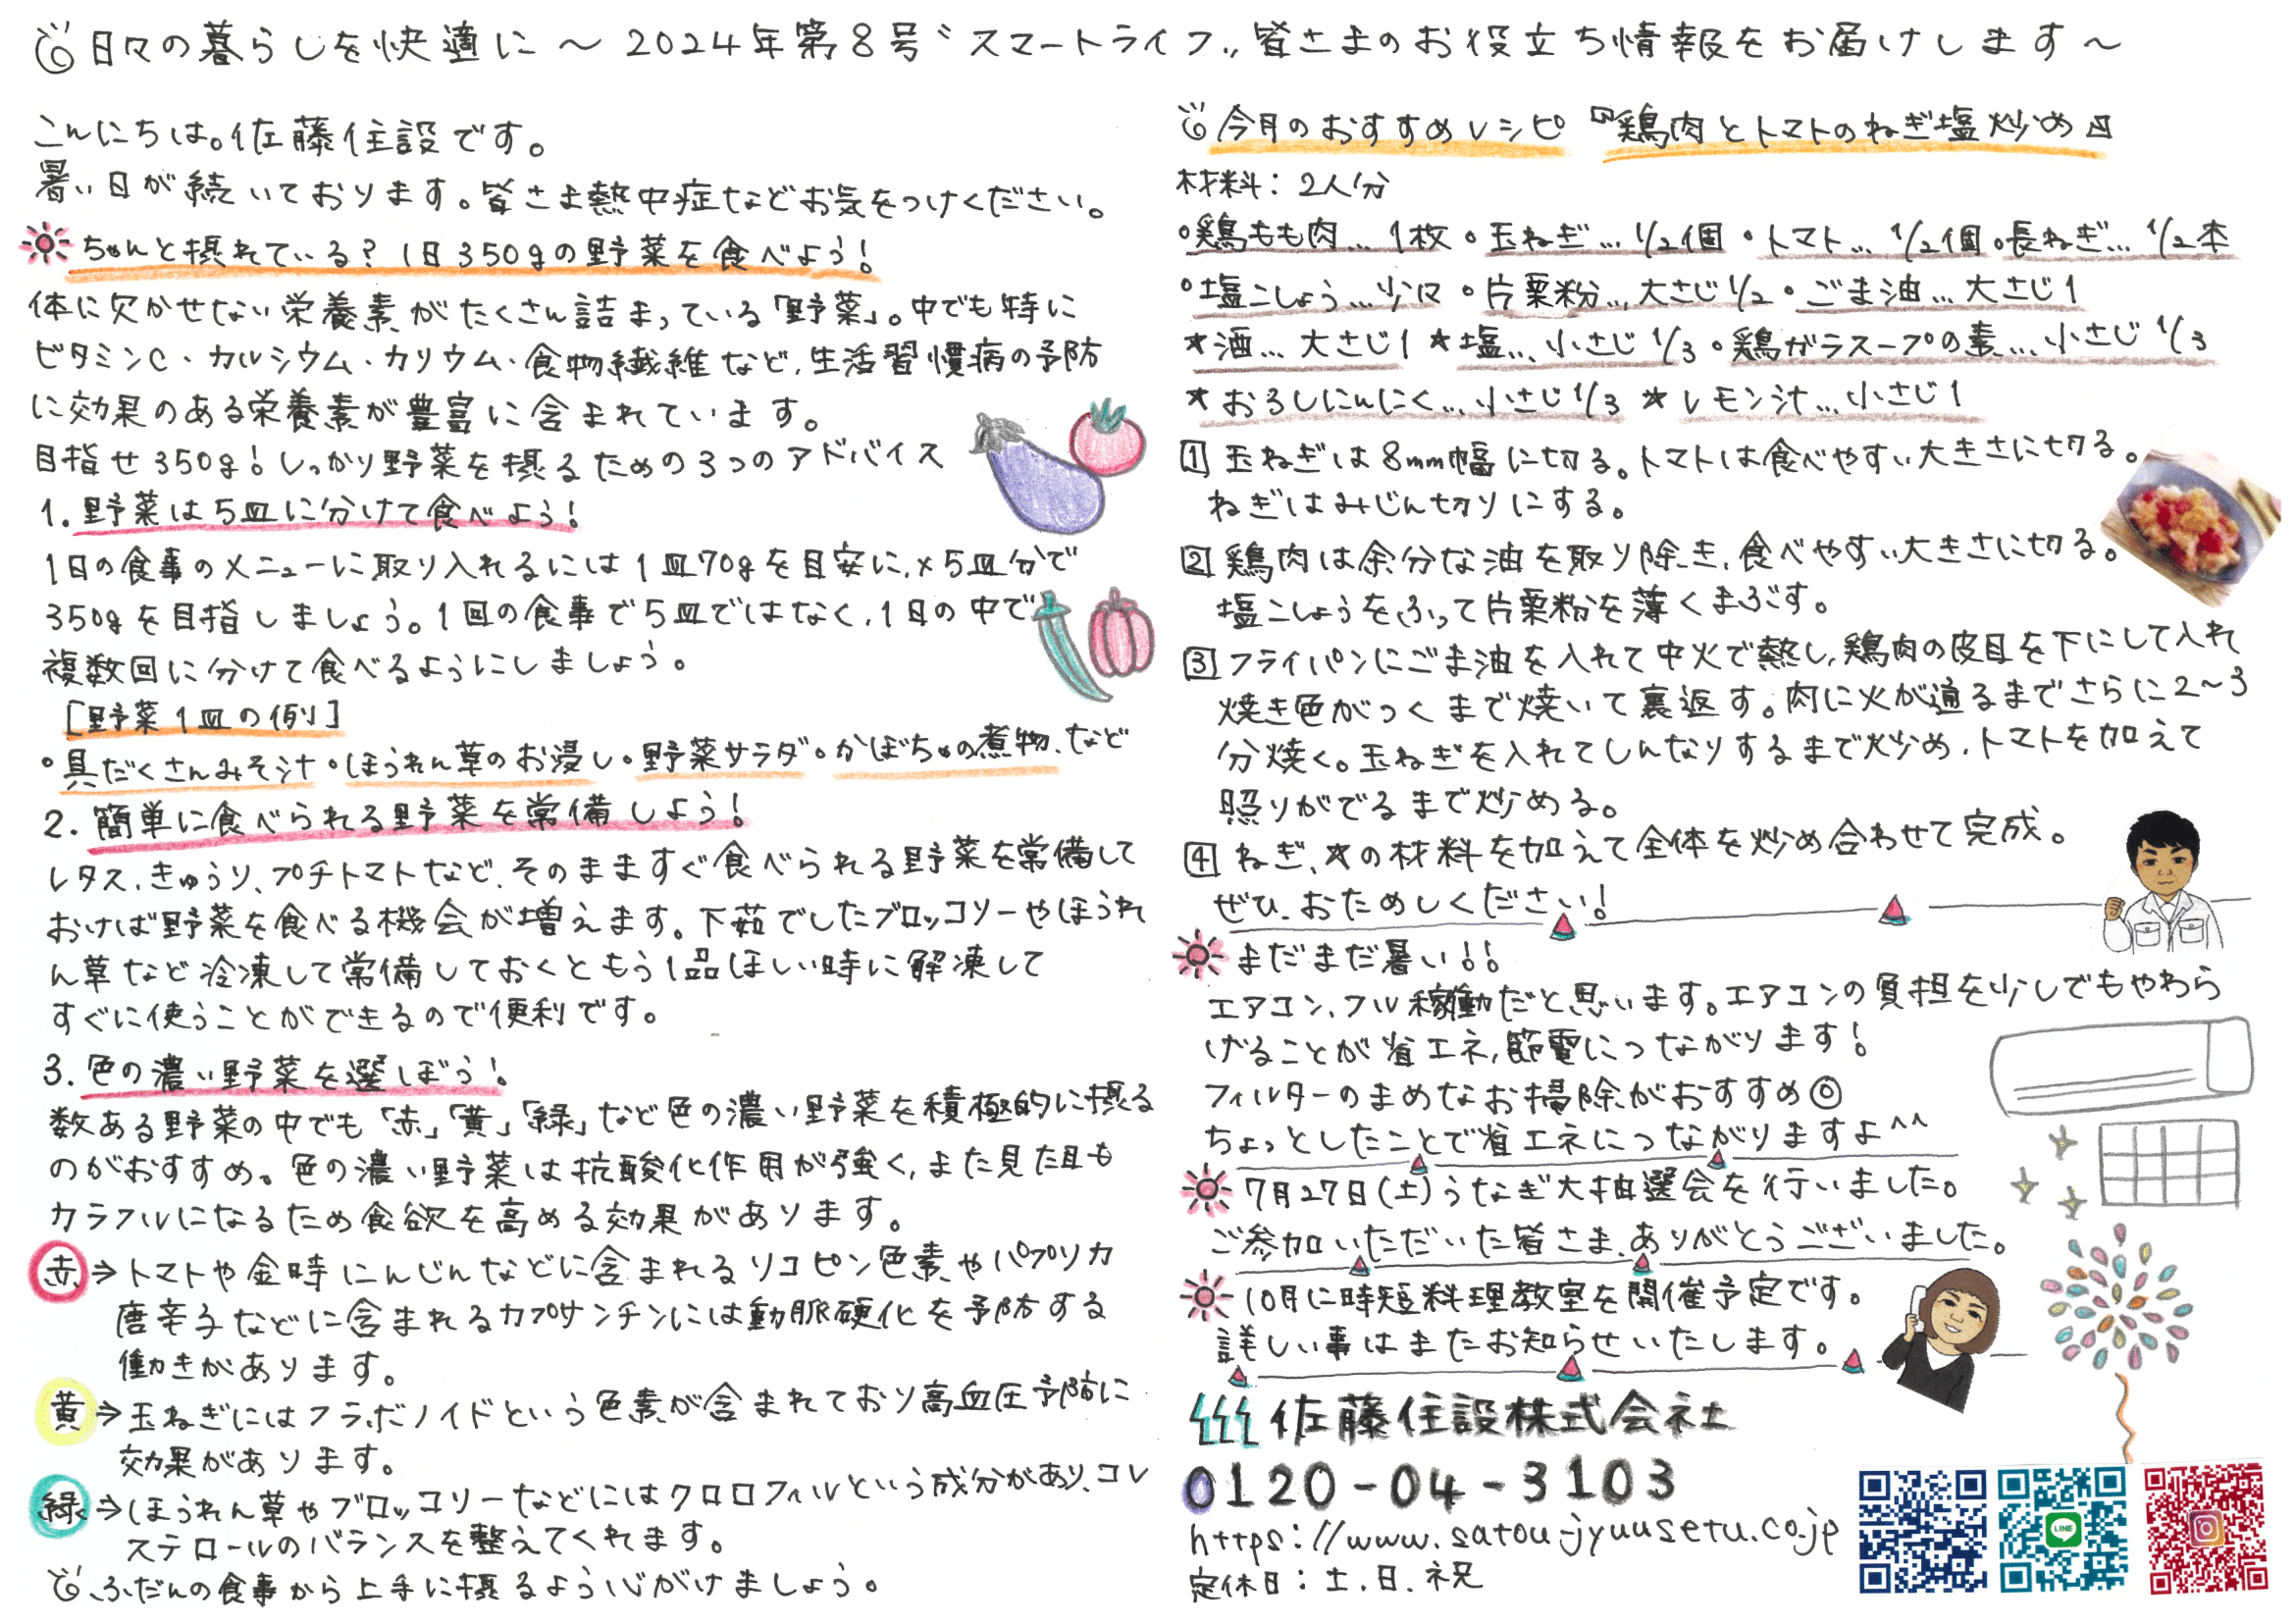 日々の暮らしを快適に～2024年第8号〝スマートライフ〟皆さまのお役立ち情報をお届けします～
こんにちは。佐藤住設です。
暑い日が続いております。皆さま熱中症などお気をつけください。
ちゃんと摂れている？1日350gの野菜を食べよう！
体に欠かせない栄養素がたくさん詰まっている「野菜」。中でも特に
ビタミンC・カルシウム・カリウム・食物繊維など、生活習慣病の予防
に効果のある栄養素が豊富に含まれています。
目指せ350g！しっかり野菜を摂るための3つのアドバイス
1.野菜は5皿に分けて食べよう！
1日の食事のメニューに取り入れるには1皿70gを目安に、×5皿分で
350gを目指しましょう。1回の食事で5皿ではなく、1日の中で
複数回に分けて食べるようにしましょう。
［野菜1皿の例］
・具だくさんみそ汁・ほうれん草のお浸し・野菜サラダ・かぼちゃの煮物、など
2.簡単に食べられる野菜を常備しよう！
レタス、きゅうり、プチトマトなど、そのまますぐ食べられる野菜を常備して
おけば野菜を食べる機会が増えます。下茹でしたブロッコリーやほうれ
ん草など冷凍して常備しておくともう1品ほしい時に解凍して
すぐに使うことができるので便利です。
3.色の濃い野菜を選ぼう！
数ある野菜の中でも「赤」「黄」「緑」など色の濃い野菜を積極的に摂る
のがおすすめ。色の濃い野菜は抗酸化作用が強く、また見た目も
カラフルになるため食欲を高める効果があります。
赤⇒トマトや金時にんじんなどに含まれるリコピン色素やパプリカ
唐辛子などに含まれるカプサンチンには動脈硬化を予防する
働きがあります。
黄⇒玉ねぎにはフラボノイドという色素が含まれており高血圧予防に
効果があります。
緑⇒ほうれん草やブロッコリーなどにはクロロフィルという成分があり、コレ
ステロールのバランスを整えてくれます。
ふだんの食事から上手に摂るよう心がけましょう。
今月のおすすめレシピ『鶏肉とトマトのねぎ塩炒め』
材料：2人分
・鶏もも肉…1枚・玉ねぎ…1/2個・トマト…1/2個・長ねぎ…1/2本
・塩こしょう…少々・片栗粉…大さじ1/2・ごま油…大さじ1
★酒…大さじ1★塩…小さじ1/3・鶏ガラスープの素…小さじ1/3
★おろしにんにく…小さじ1/3★レモン汁…小さじ1
1 玉ねぎは8mm幅に切る。トマトは食べやすい大きさに切る。
ねぎはみじん切りにする。
2 鶏肉は余分な油を取り除き、食べやすい大きさに切る。
塩こしょうをふって片栗粉を薄くまぶす。
3 フライパンにごま油を入れて中火で熱し、鶏肉の皮目を下にして入れ
焼き色がつくまで焼いて裏返す。肉に火が通るまでさらに2～3
分焼く。玉ねぎを入れてしんなりするまで炒め、トマトを加えて
照りがでるまで炒める。
4 ねぎ、★の材料を加えて全体を炒め合わせて完成。
ぜひ、おためしください！
まだまだ暑い！！
エアコン、フル稼働だと思います。エアコンの負担を少しでもやわら
げることが省エネ、節電につながります！
フィルターのまめなお掃除がおすすめ◎
ちょっとしたことで省エネにつながりますよ^^
7月27日(土)うなぎ大抽選会を行いました。
ご参加いただいた皆さま、ありがとうございました。
10月に時短料理教室を開催予定です。
詳しい事はまたお知らせいたします。
佐藤住設株式会社
0120-04-3103
https://www.satou-jyuusetu.co.jp
LINE
定休日：土.日.祝